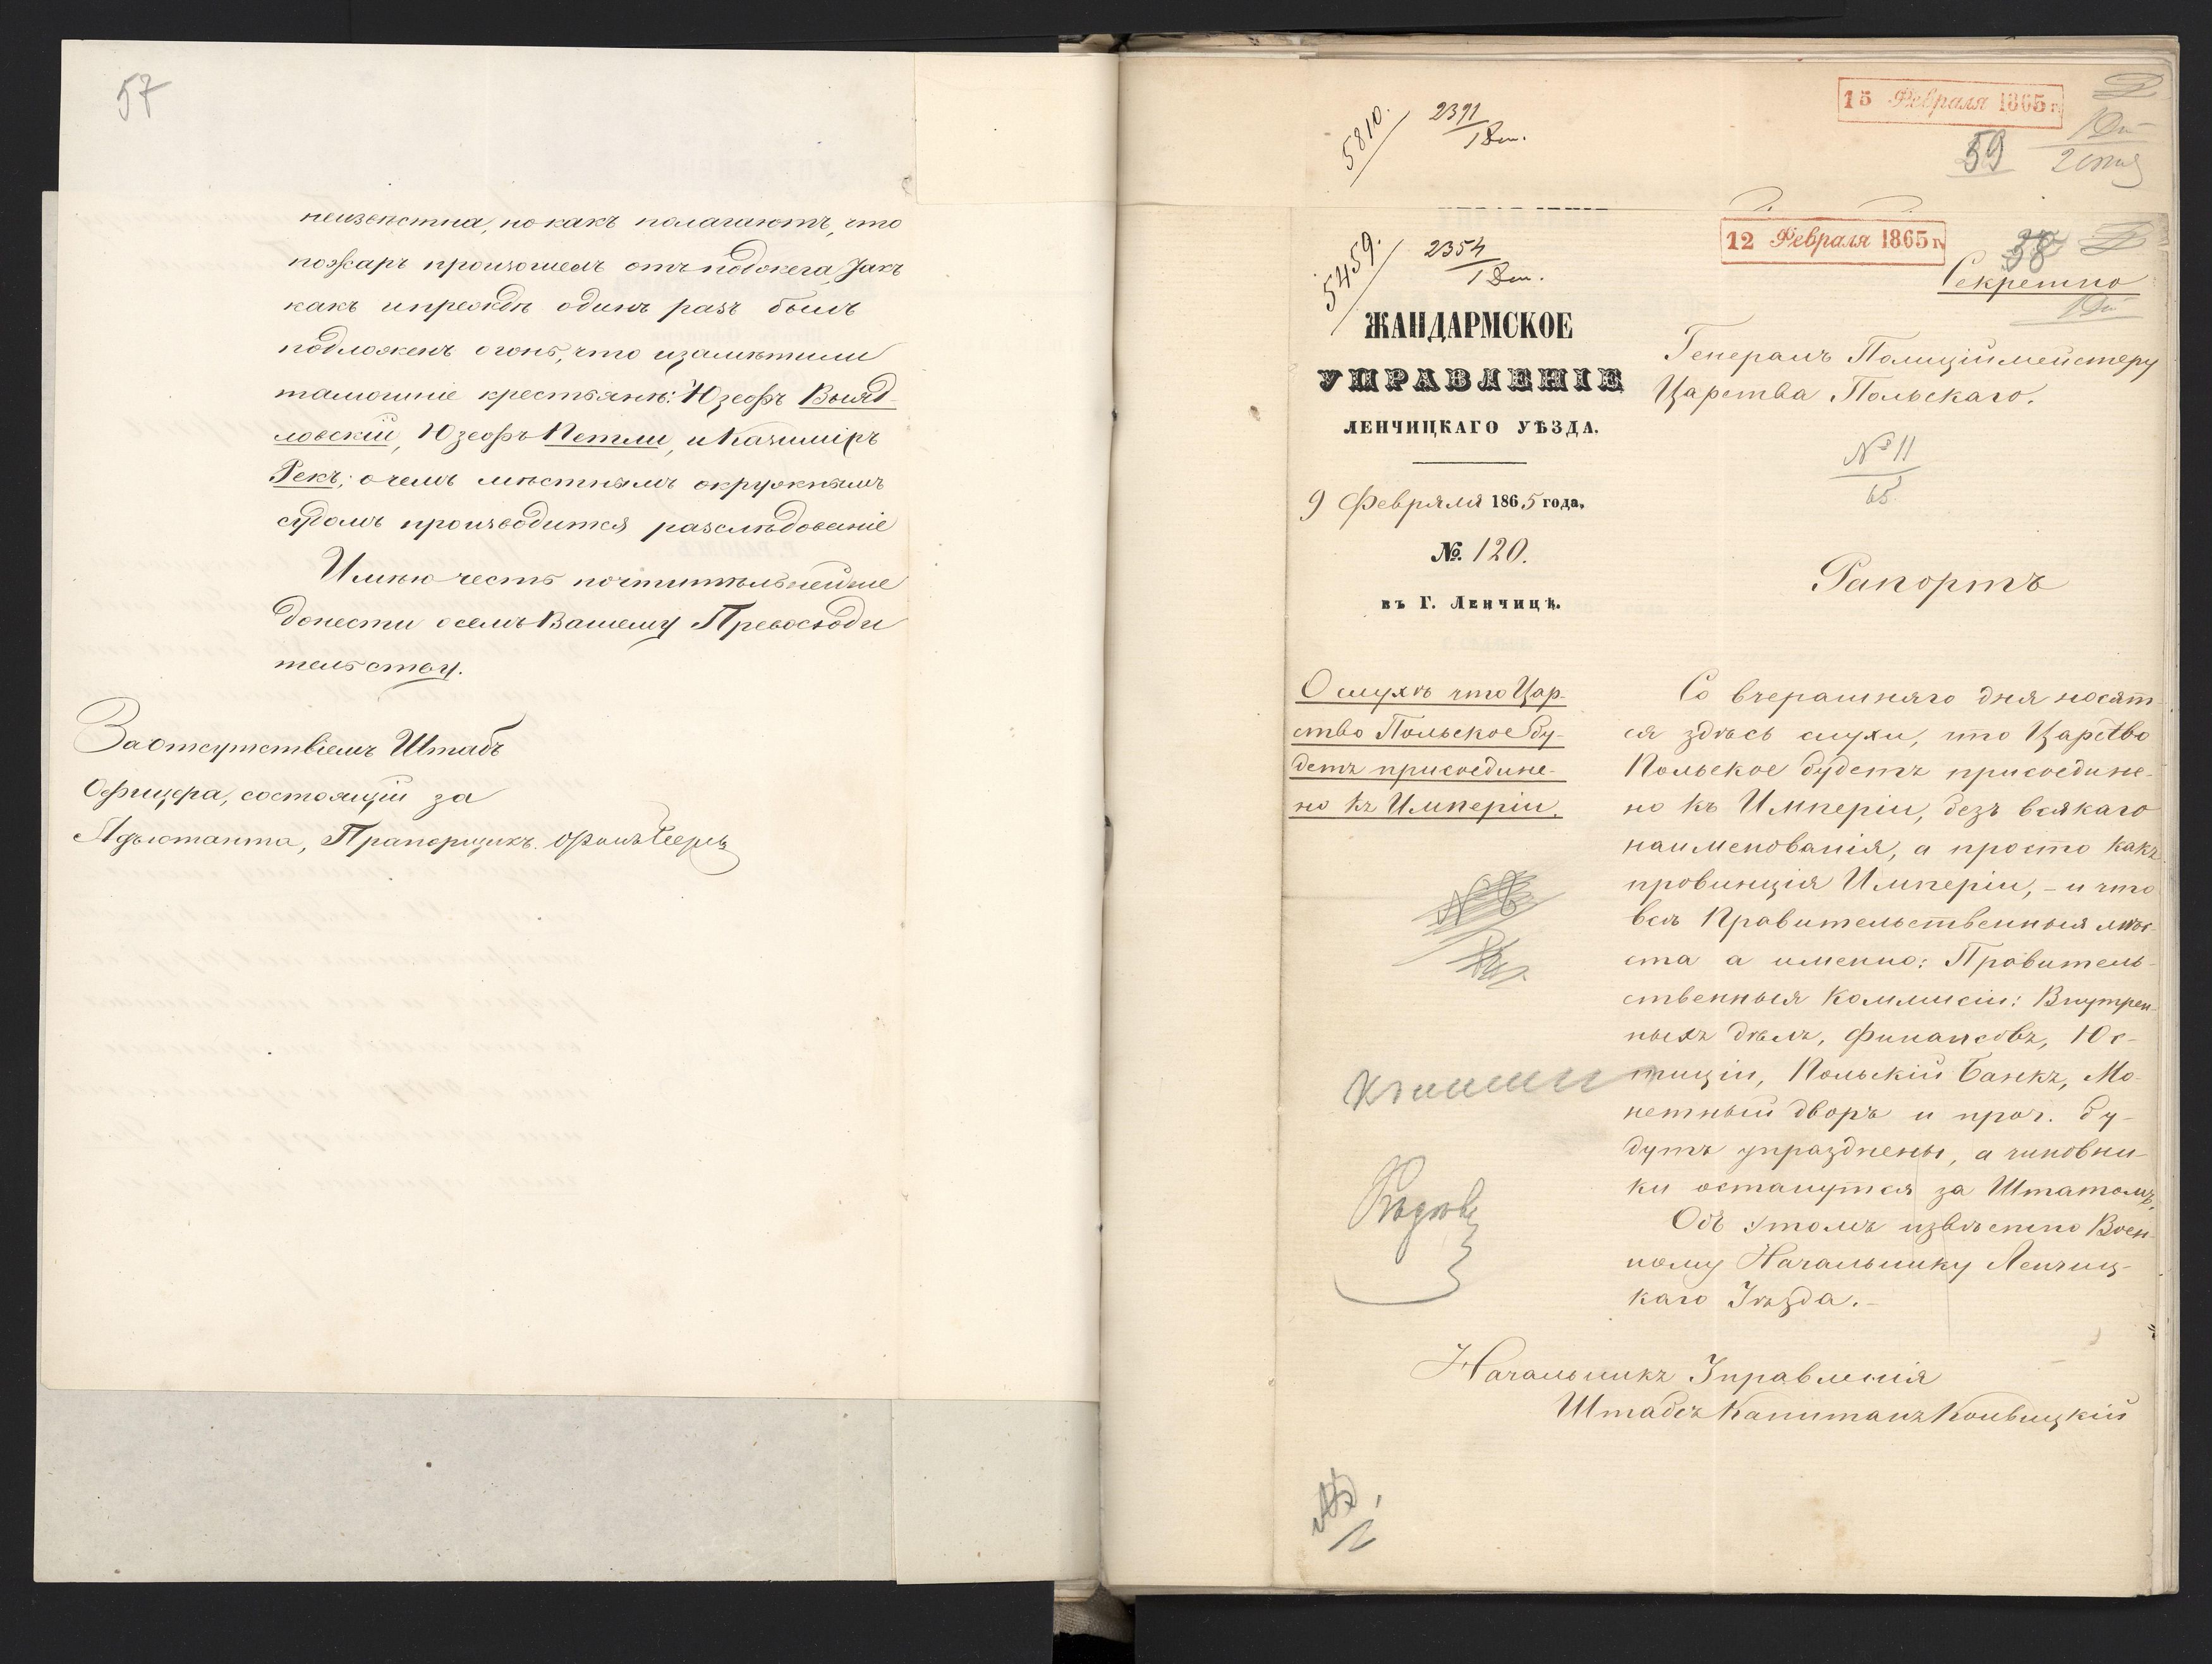 57
неизвѣстна, но какъ полагаютъ, что
пожаръ произошелъ отъ поджега, такъ
какъ и прежде одинъ разъ былъ
подложенъ огонь, что и замѣтили
тамошніе крестьяне: Юзефъ Выяд-
ловскій, Юзефъ Петли, и Казимиръ
Рекъ; о чемъ мѣстнымъ окружнымъ
судомъ производится разслѣдованіе
Имѣю честь почтительнейше
донести о семъ Вашему Превосходи
тельству.
За отсутствіемъ Штабъ
Офицера, состоящій за
Адъютанта, Прапорщикъ
5810.
2391
1 Эт.
15 Февраля 1865 г.
59
5459.
2354
1 Эт.
12 Февраля 1865 г.
58
Секретно
ЖАНДАРМСКОЕ
УПРАВЛЕНІЕ
ЛЕНЧИЦКАГО УѢЗДА.
9 Февраля 1865 года.
№. 120.
въ Г. Ленчицѣ.
Генералъ Полиціймейстеру
Царства Польскаго.
№ 11
65
Рапортъ
О слухѣ что Цар-
ство Польское бу-
детъ присоедине-
но къ Имперіи.
Со вчерашняго дня носят-
ся здѣсь слухи, что Царство
Польское будетъ присоедине-
но къ Имперіи, безъ всякаго
наименованія, а просто какъ
провинція Имперіи, - и что
всѣ Правительственныя мѣс-
та а именно: Правитель-
ственныя Коммисіи: Внутрен-
ныхъ дѣлъ, Финансовъ, Юс-
тиціи, Польскій Банкъ, Мо-
нетный дворъ и проч. бу-
дутъ упразднены, а чиновни-
ки останутся за Штатомъ.
Объ этомъ извѣстно Воен-
ному Начальнику Ленчиц-
каго Уѣзда.-
Начальникъ Управленія
Штабсъ Капитанъ